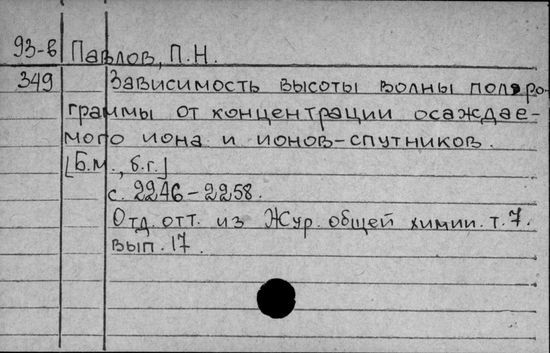 93-в Павлов, П.Н.
349 Зависимость высоты волны поляро-
граммы от концентрации осаждае-
мого иона и ионов-спутников.
[Б.м., б.г.]
с. 2246-2258.
Отд. отт. из Жур. общей химии. т. 7.
вып. 17.